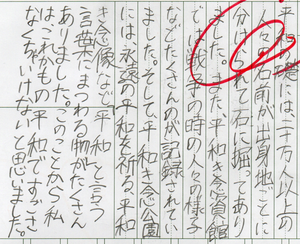 和の礎には二十万人以上の
人々の名前が出身地ごとに
分けられて石に掘ってあり
ました。また平和き念資料館
では戦争の時の人々の様子
などたくさんのが記録されてい
ました。そして、平和き念公園
には永遠の平和を祈る、平和
き念像など、平和と言う
言葉にまわる物がたくさん
ありました。このことから私
はこれかもの平和ですごさ
なくちゃいけないと思ました。